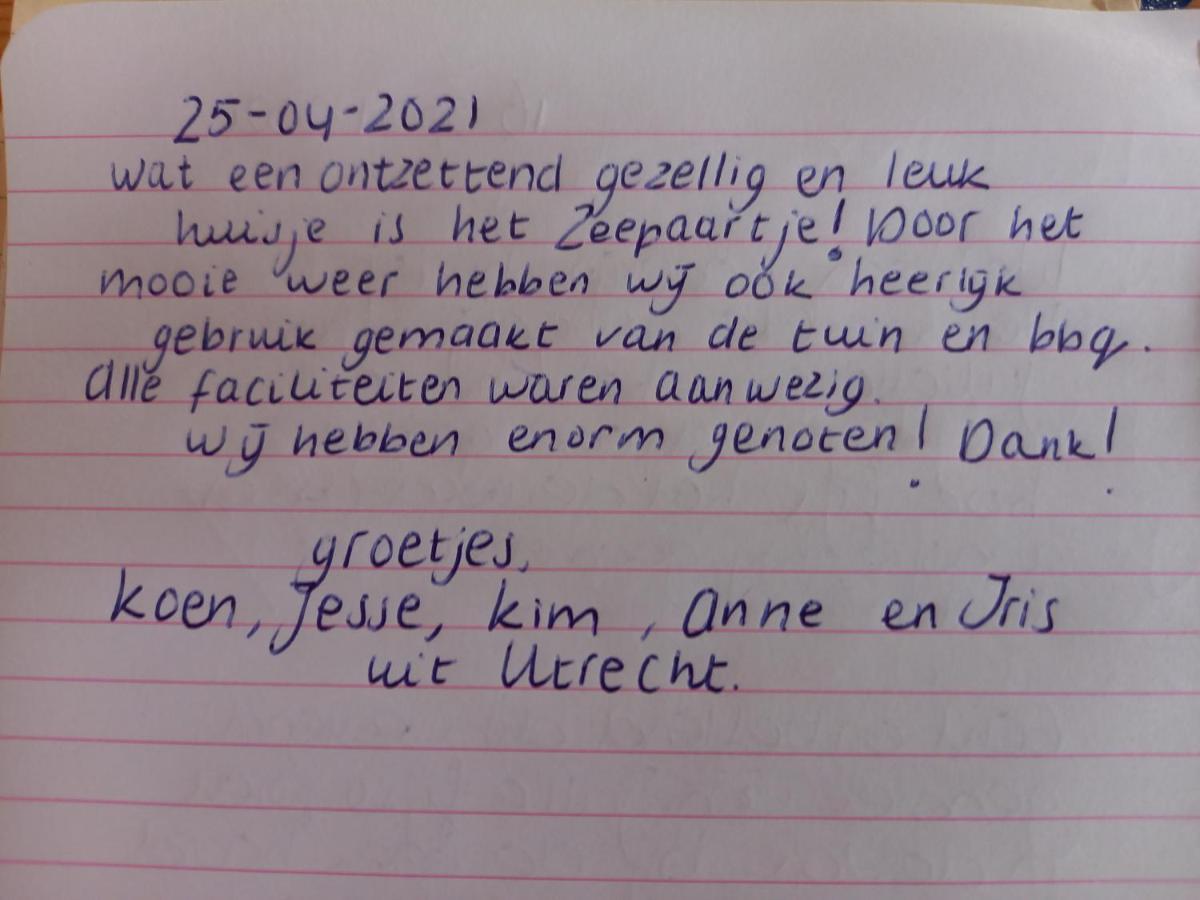 25-04-2021
wat een ontzettend gezellig en leuk
huisje is het Zeepaartje! Door het
mooie weer hebben wij ook heerlijk
gebruik gemaakt van de tuin en bbq.
Alle faciliteiten waren aanwezig.
Wij hebben enorm genoten! Dank!
groetjes,
Koen, Jesse, Kim, Anne en Iris
uit Utrecht.